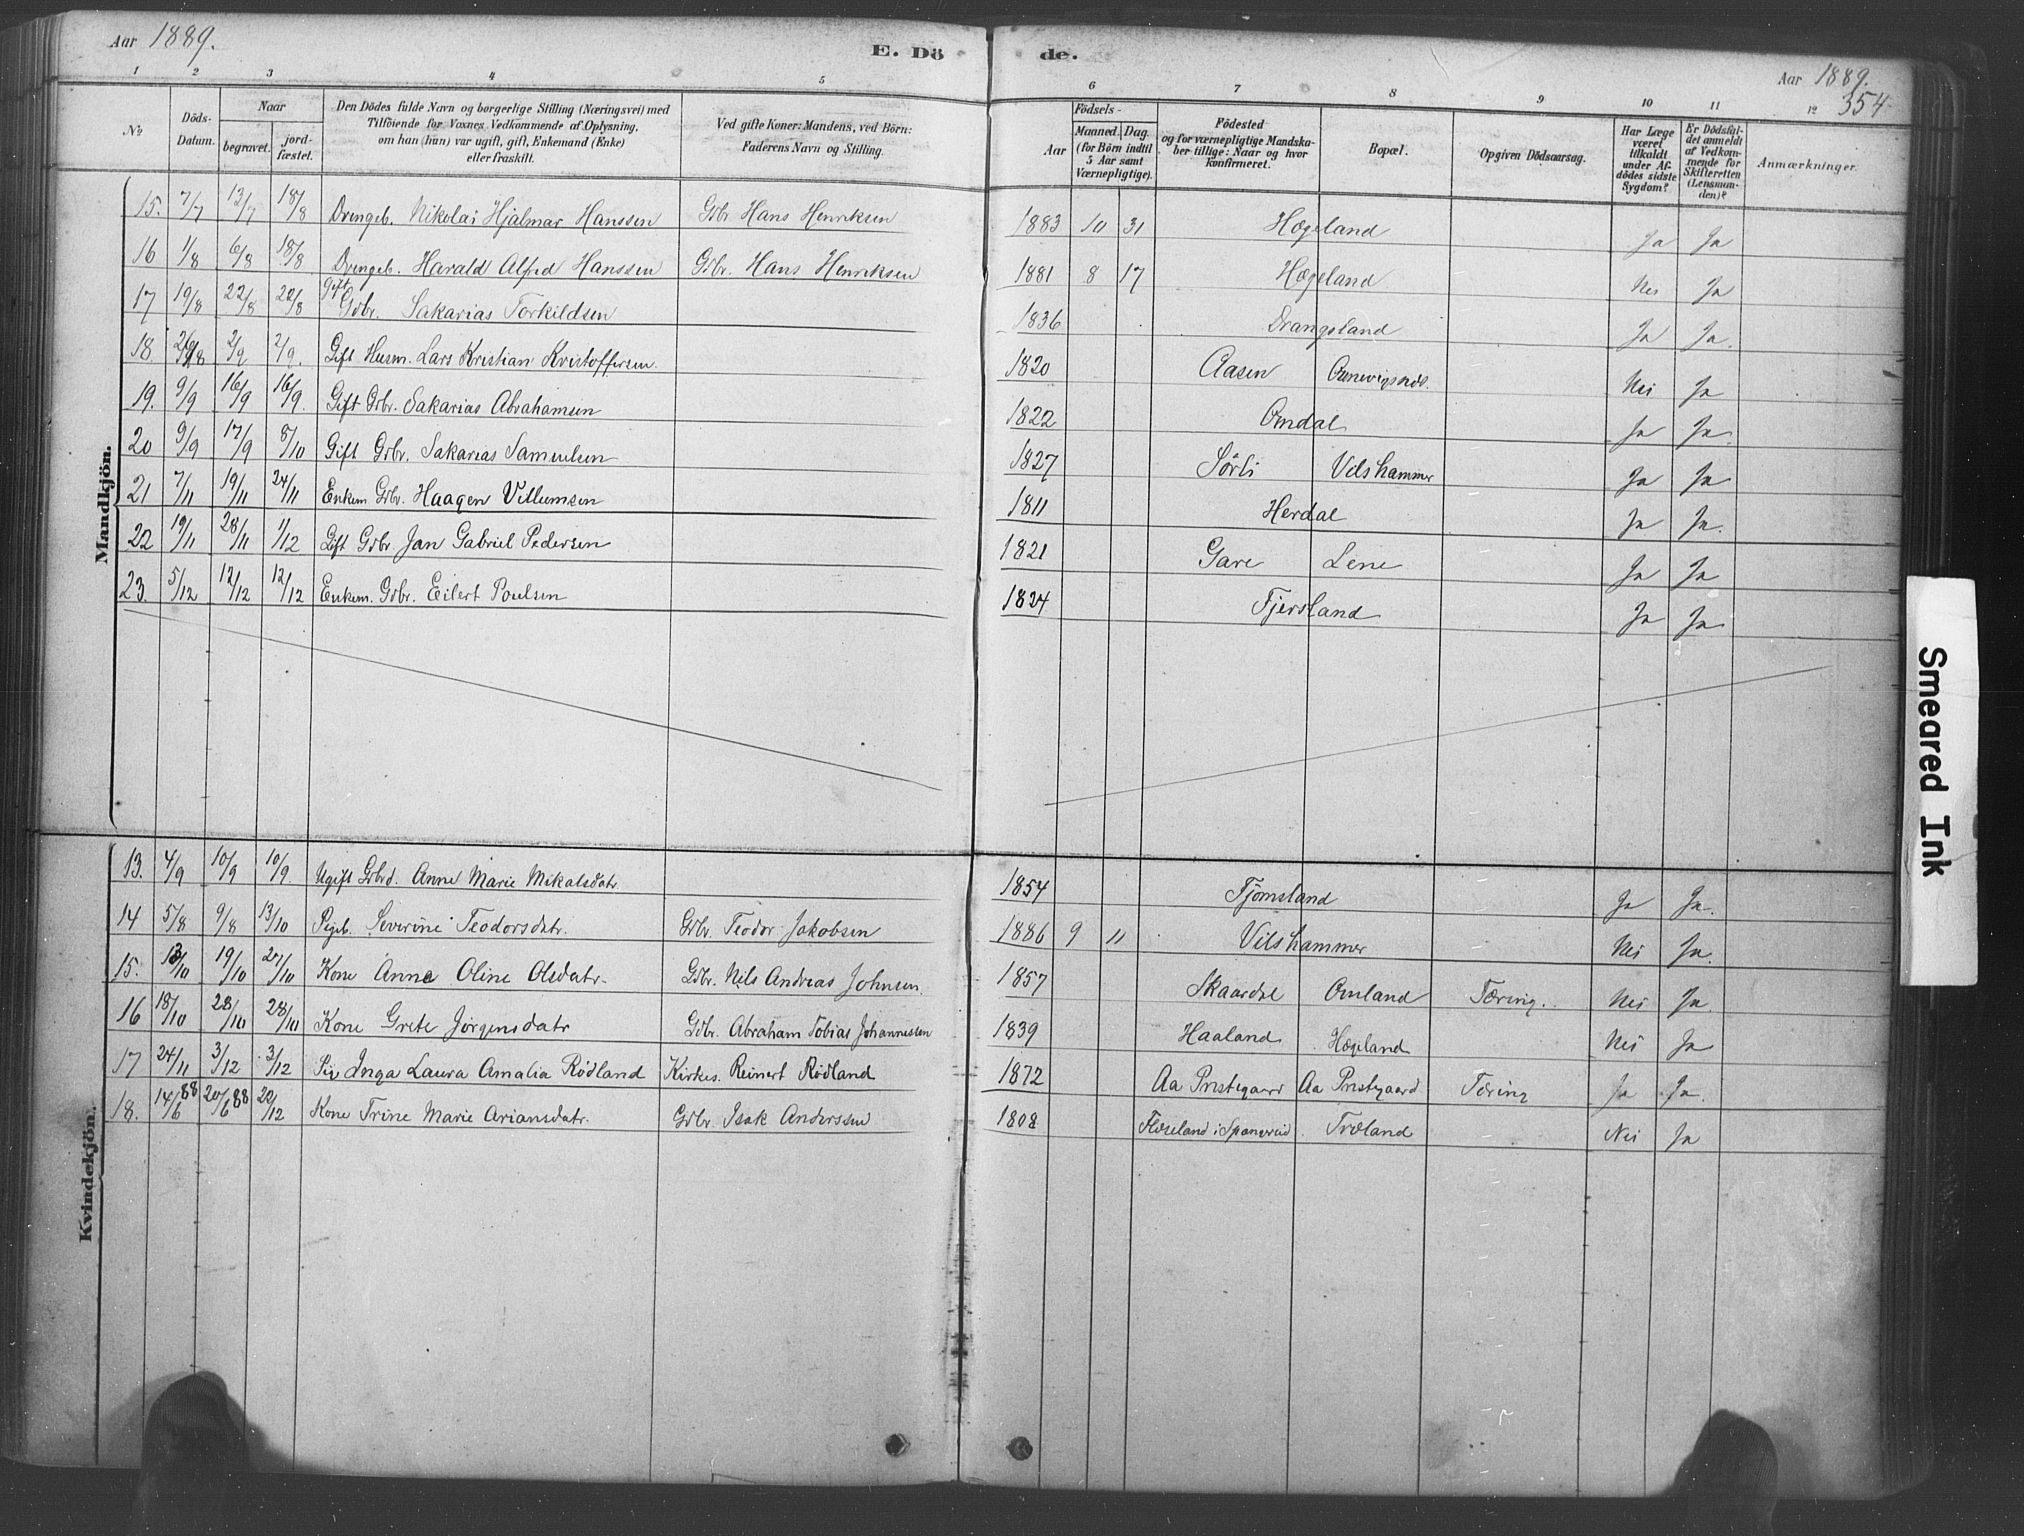 Aar 1889.
E. Dö de.
Aar 1889.
354
1 2 3 4 5 6 7 8 9 10 11 12
No
Döds-Datum.
Naar
begravet.
jord-fæstet.
Den Dödes fulde Navn og borgerlige Stilling (Næringsvei) med
Tilföiende for Voxnes Vedkommende af Oplysning,
om han (hun) var ugift, gift, Enkemand (Enke)
eller fraskilt.
Ved gifte Koner: Mandens, ved Börn:
Faderens Navn og Stilling.
Födsels-
Aar
Maaned. Dag.
(for Börn indtil
5 Aar samt
Værnepligtige).
Födested
og for værnepligtige Mandska-
ber tillige: Naar og hvor
konfirmeret.
Bopæl.
Opgiven Dödsaarsag.
Har Læge
været
tilkaldt
under Af-
dödes sidste
Sygdom?
Er Dödsfal-
det anmeldt
af Vedkom-
mende for
Skifteretten
(Lensman-
den)?
Anmærkninger.
Mandkjön.
15. 7/7 13/7 18/8 Drengeb. Nikolai Hjalmar Hanssen Gbr. Hans Henriksen 1883 10 31 Hægeland Ja Ja
16 1/8 6/8 18/8 Drengeb. Harald Alfred Hanssen Gbr. Hans Henriksen 1881 8 17 Hægeland Nei Ja
17 19/8 22/8 22/8 Gift Gbr. Sakarias Torkildsen 1836 Drangsland Ja Ja.
18. 2/9 2/9. Gift Husm. Lars Kristian Kristoffersen. 1820 Aasen Nei Ja
19. 9/9 16/9 16/9. Gift Gbr. Sakarias Abrahamsen 1822 Omdal Ja Ja.
20 9/9 17/9 8/10 Gift Gbr. Sakarias Samuelsen 1827 Sørli Vilshammer Ja Ja
21 7/11 19/11 24/11 Enkem. Gbr. Haagen Villumsen 1811 Herdal Ja Ja.
22 19/11 28/11 1/12 Gift Gbr Jan Gabriel Pedersen 1821 Gare Lene Ja Ja
23. 5/12 12/12 12/12 Enkem. Gbr. Eilert Poulsen 1824 Fjersland Ja Ja
Kvindekjön.
13. 4/9 10/9 10/9. Ugift Gbrd. Anne Marie Mikalsdatr. 1854 Fjomsland Ja Ja.
14 5/8 9/8 13/10 Pigeb. Severine Teodorsdatr. Gbr. Teodor Jakobsen 1886 9 11 Vilshammer Nei Ja.
15. 13/10 19/10 27/10 Kone Anne Oline Olsdatr. Gbr. Nils Andreas Johnsen. 1857 Skaardal Omland Tæring. Nei Ja.
16 18/10 28/10 28/10 Kone Grete Jørgensdatr Gbr. Abraham Tobias Johannessen 1839 Haaland Hægeland Nei Ja
17 24/11 3/12 3/12 Pige Inga Laura Amalia Rødland Kirkes. Reinert Rødland 1872 Aa Prestegaard Aa Prestegaard Tæring Ja Ja.
18. 14/6 88 20/6 88 22/12 Kone Trine Marie Ariansdatr. Gbr. Isak Anderssen 1808 Træland Nei Ja
Smeared Ink